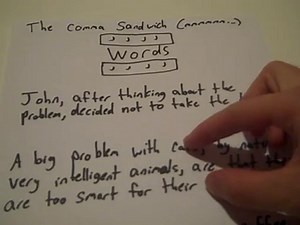 The Comma Sandwich (mmmmmm...)
, , , ,
Words
, , , ,
John, after thinking about the
problem, decided not to take the
A big problem with
very intelligent animals, are that
are too smart for their